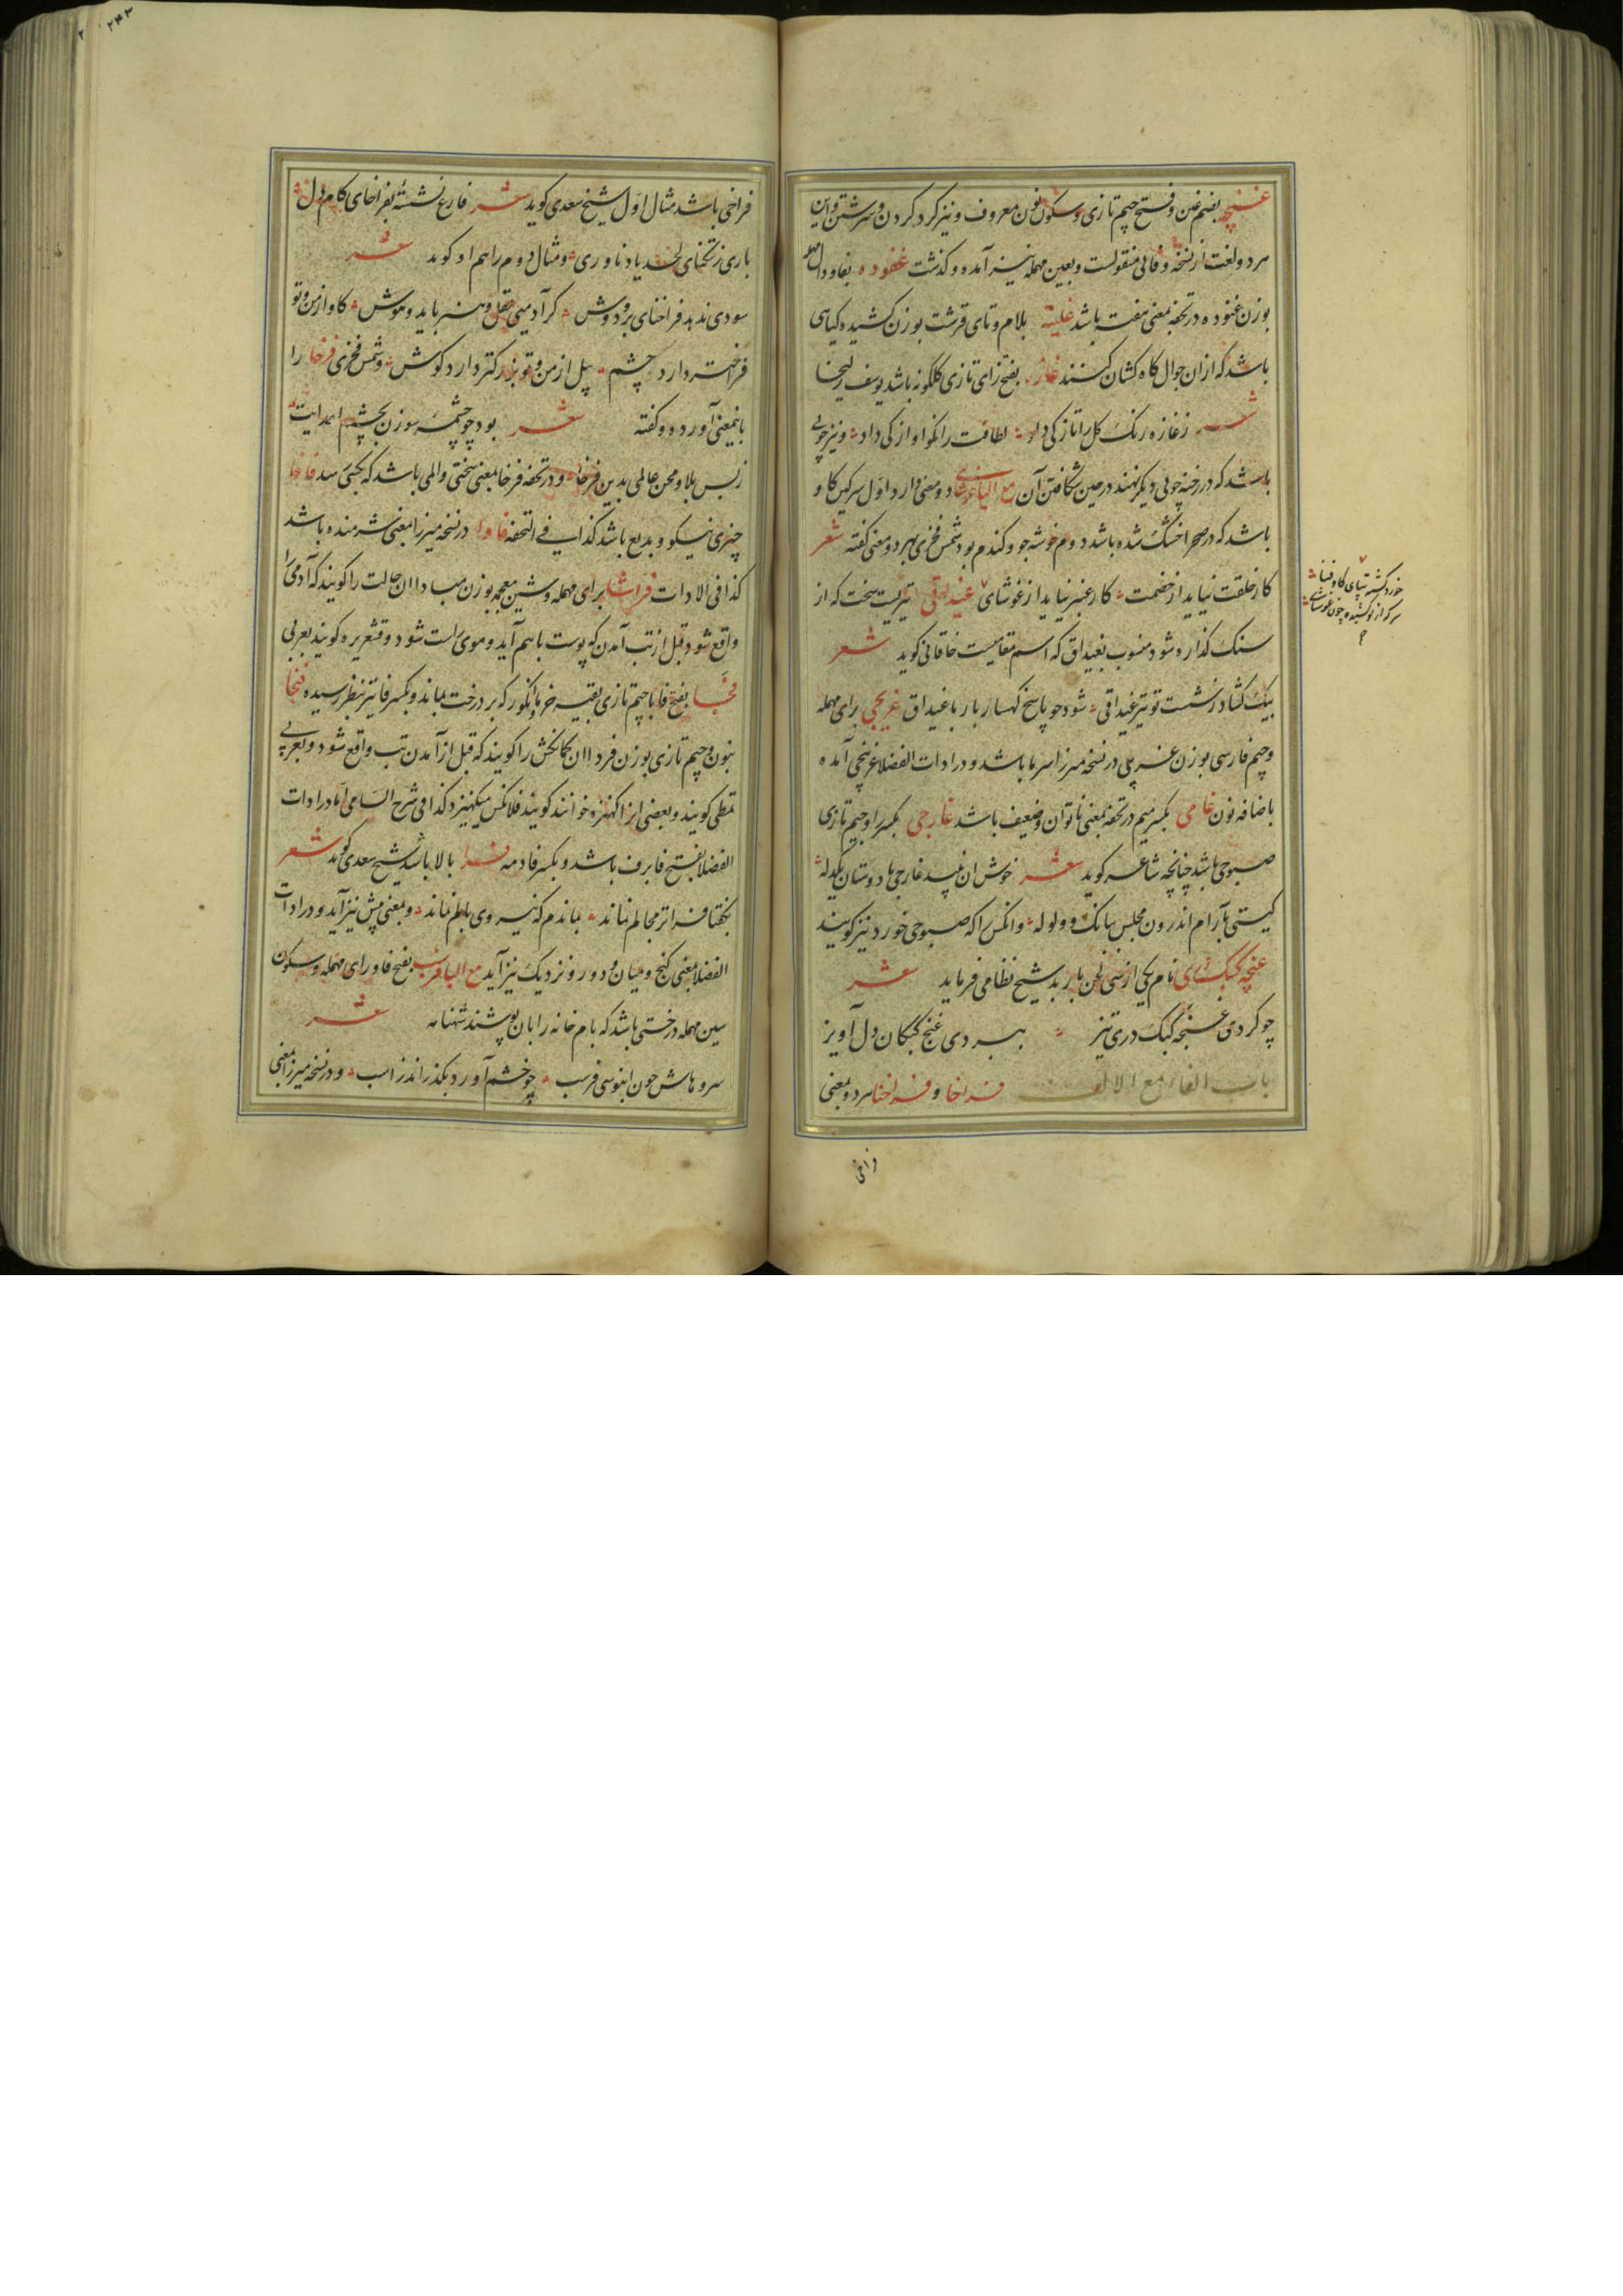 غنچه بضم غین و فتح جیم تازی و سکون نون معروف و نیز کرد کردن و سرشتن و این
هر دو لغت از نسخه وفائی منقولست و بعین مهمله نیز آمده و کذشت غفوده بفا و دال مهمله
بوزن غنوده در تحفه بمعنی هفته باشد غلیته بلام و تای قرشت بوزن کشیده کیاهی
باشد که ازان جوال کاه کشان کنند غازه بفتح زای تازی کلکونه باشد یوسف زلیخا
شعر ز غازه رنک کل را تازکی داد لطافت را نکو اوازکی داد و نیز چوبی
باشد که در رخنه چوبی دیکر نهند در حین شکافتن آن مع الیا غوشای دو معنی دارد اول سرکین کاو
باشد که در صحرا خشک شده باشد دوم خوشه جو و کندم بود شمس فخری بهر دو معنی کفته شعر
کار خلقت نیاید از خصمت کار عنبر نیاید از غوشای غیداقی تیریست سخت که از
سنک کذاره شود منسوب بغیداق که اسم مقامیست خاقانی کوید شعر
بیک کشاد ز شست تو تیر غیداقی شود چو پاسخ کهسار باز با غیداق غریچی برای مهمله
و جیم فارسی بوزن غریلی در نسخه میرزا سرما باشد و در ادات الفضلا غرنچی آمده
باضافه نون غامی بکسر میم در تحفه بمعنی ناتوان و ضعیف باشد غارجی بکسر را و جیم تازی
صبوحی باشد چنانچه شاعر کوید شعر خوش ان نبید غارجی با دوستان یکدله
کیتی بآرام اندرون مجلس ببانک و ولوله و انکس را که صبوحی خورد نیز کویند
غنچه کبک دری نام یکی از سی لحن باربد شیخ نظامی فرماید شعر
چو کردی غنچه کبک دری تیز ببردی غنج کبکان دل آویز
باب الفا مع الالف فراخا و فراخنا هر دو بمعنی
فراخی
خورد کشته بپای کاو فنا
هر که از تو کشیده چون غوشای
۲۴۳
فراخی باشد مثال اول شیخ سعدی کوید شعر فارغ نشسته بفراخای کام دل
باری ز تنکنای لحد یاد ناوری و مثال دوم را هم او کوید شعر
سودی ندهد فراخنای بر و دوش کر آدمیی عقل و هنر باید و هوش کاو از من و تو
فراختر دارد چشم پیل از من و تو بزرکتر دارد کوش و شمس فخری فرخا را
باینمعنی آورده و کفته شعر بود چو چشمه سوزن بچشم اعدایت
ز بس بلا و محن عالمی بدین فرخا و در تحفه فرخا بمعنی سختی و المی باشد که بکسی رسد فاخا
چیزی نیکو و بدیع باشد کذا فی التحفه فاوا در نسخه میرزا بمعنی شرمنده باشد
کذا فی الادات فراشا برای مهمله و شین معجمه بوزن مبادا ان حالت را کویند که آدمی را
واقع شود قبل از تب آمدن که پوست باهم آید و موی راست شود و قشعریره کویند بعربی
فجا بفتح فا با جیم تازی بقیه خرما و انکور که بر درخت بماند و بکسر فا نیز بنظر رسیده فنجا
بنون و جیم تازی بوزن فردا ان کمانکش را کویند که قبل از آمدن تب واقع شود و بعربی
تمطی کویند و بعضی انرا کهنزه خوانند کویند فلانکس میکهنزد کذا فی شرح السامی اما در ادات
الفضلا بفتح فا برف باشد و بکسر فا دمه فرا بالا باشد شیخ سعدی کوید شعر
بکفتا فراتر مجالم نماند بماندم که نیروی بالم نماند و بمعنی پیش نیز آید و در ادات
الفضلا بمعنی کنج و میان و دور و نزدیک نیز آید مع البا فرسب بفتح فا و رای مهمله و سکون
سین مهمله درختی باشد که بام خانه را بان پوشند شهنامه شعر
سروهاش چون ابنوسی فرسب چو خشم آورد بکذراند ز اسب و در نسخه میرزا بمعنی